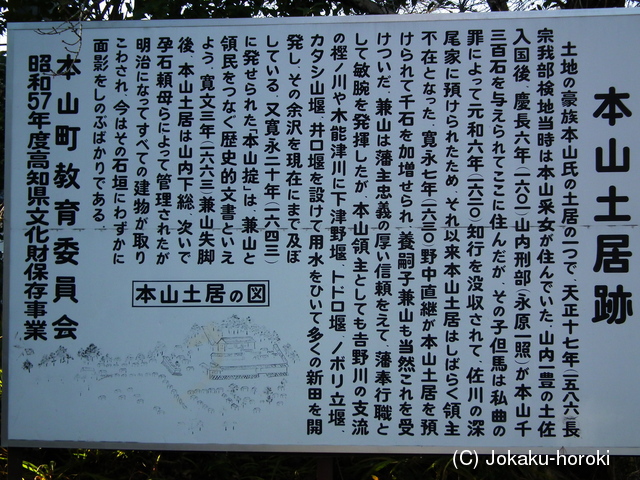 本山土居跡
土地の豪族本山氏の土居の一つで、天正十七年(一五八六)長
宗我部検地当時は本山采女が住んでいた。山内一豊の土佐
入国後、慶長六年(一六〇一)山内刑部(永原一照)が本山千
三百石を与えられてここに住んだが、その子但馬は私曲の
罪によって元和六年(一六二〇)知行を没収されて、佐川の深
尾家に預けられたため、それ以来本山土居はしばらく領主
不在となった。寛永七年(一六三〇)野中直継が本山土居を預
けられて千石を加増せられ、養嗣子兼山も当然これを受
けついだ。兼山は藩主忠義の厚い信頼をえて、藩奉行職と
して敏腕を発揮したが、本山領主としても吉野川の支流
の樫ノ川や木能津川に下津野堰、トドロ堰、ノボリ立堰、
カタシ山堰、井口堰を設けて用水をひいて多くの新田を開
発し、その余沢を現在にまで及ぼ
している。又寛永二十年(一六四三)
に発せられた「本山掟」は、兼山と
領民をつなぐ歴史的文書といえ
よう。寛文三年(一六六三)兼山失脚
後、本山土居は山内下総、次いで
孕石頼母らによって管理されたが
明治になってすべての建物が取り
こわされ、今はその石垣にわずかに
面影をしのぶばかりである。
本山町教育委員会
昭和57年度高知県文化財保存事業
本山土居の図
(C) Jokaku-horoki